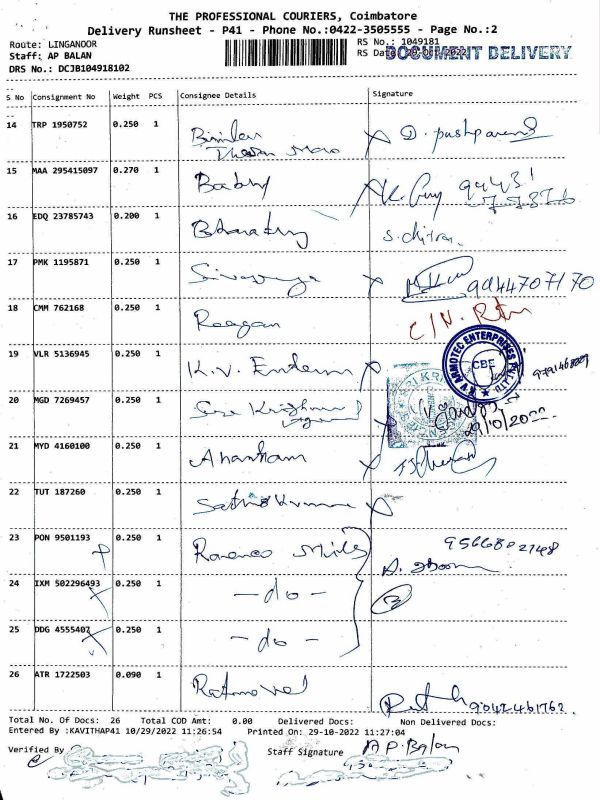 THE PROFESSIONAL COURIERS, Coimbatore
Delivery Runsheet - P41 - Phone No.:0422-3505555 - Page No.:2
Route: LINGANOOR
RS No.: 1049181
Staff: AP BALAN
RS Date: 29-Oct-2022
DOCUMENT DELIVERY
DRS No.: DCJB104918102
S No Consignment No Weight PCS Consignee Details Signature
14 TRP 1950752 0.250 1
15 MAA 295415097 0.270 1 Babby
16 EDQ 23785743 0.200 1 S. Chitra
17 PMK 1195871 0.250 1 9944707170
18 CMM 762168 0.250 1 Reegan C/N. Rtn
19 VLR 5136945 0.250 1 K.V.
K V ANMOTEC ENTERPRISES PVT LTD
CBE
20 MGD 7269457 0.250 1 Sree Krishna
SRI KRI
29/10/2022
21 MYD 4160100 0.250 1 Anantham
22 TUT 187260 0.250 1 Sathis Kumar
23 PON 9501193 0.250 1 Mills 9566802748
24 IXM 502296493 0.250 1 -do- 3
25 DDG 4555407 0.250 1 -do-
26 ATR 1722503 0.090 1 9042461762
Total No. Of Docs: 26 Total COD Amt: 0.00 Delivered Docs: Non Delivered Docs:
Entered By :KAVITHAP41 10/29/2022 11:26:54 Printed On: 29-10-2022 11:27:04
Verified By Staff Signature A P. Balan